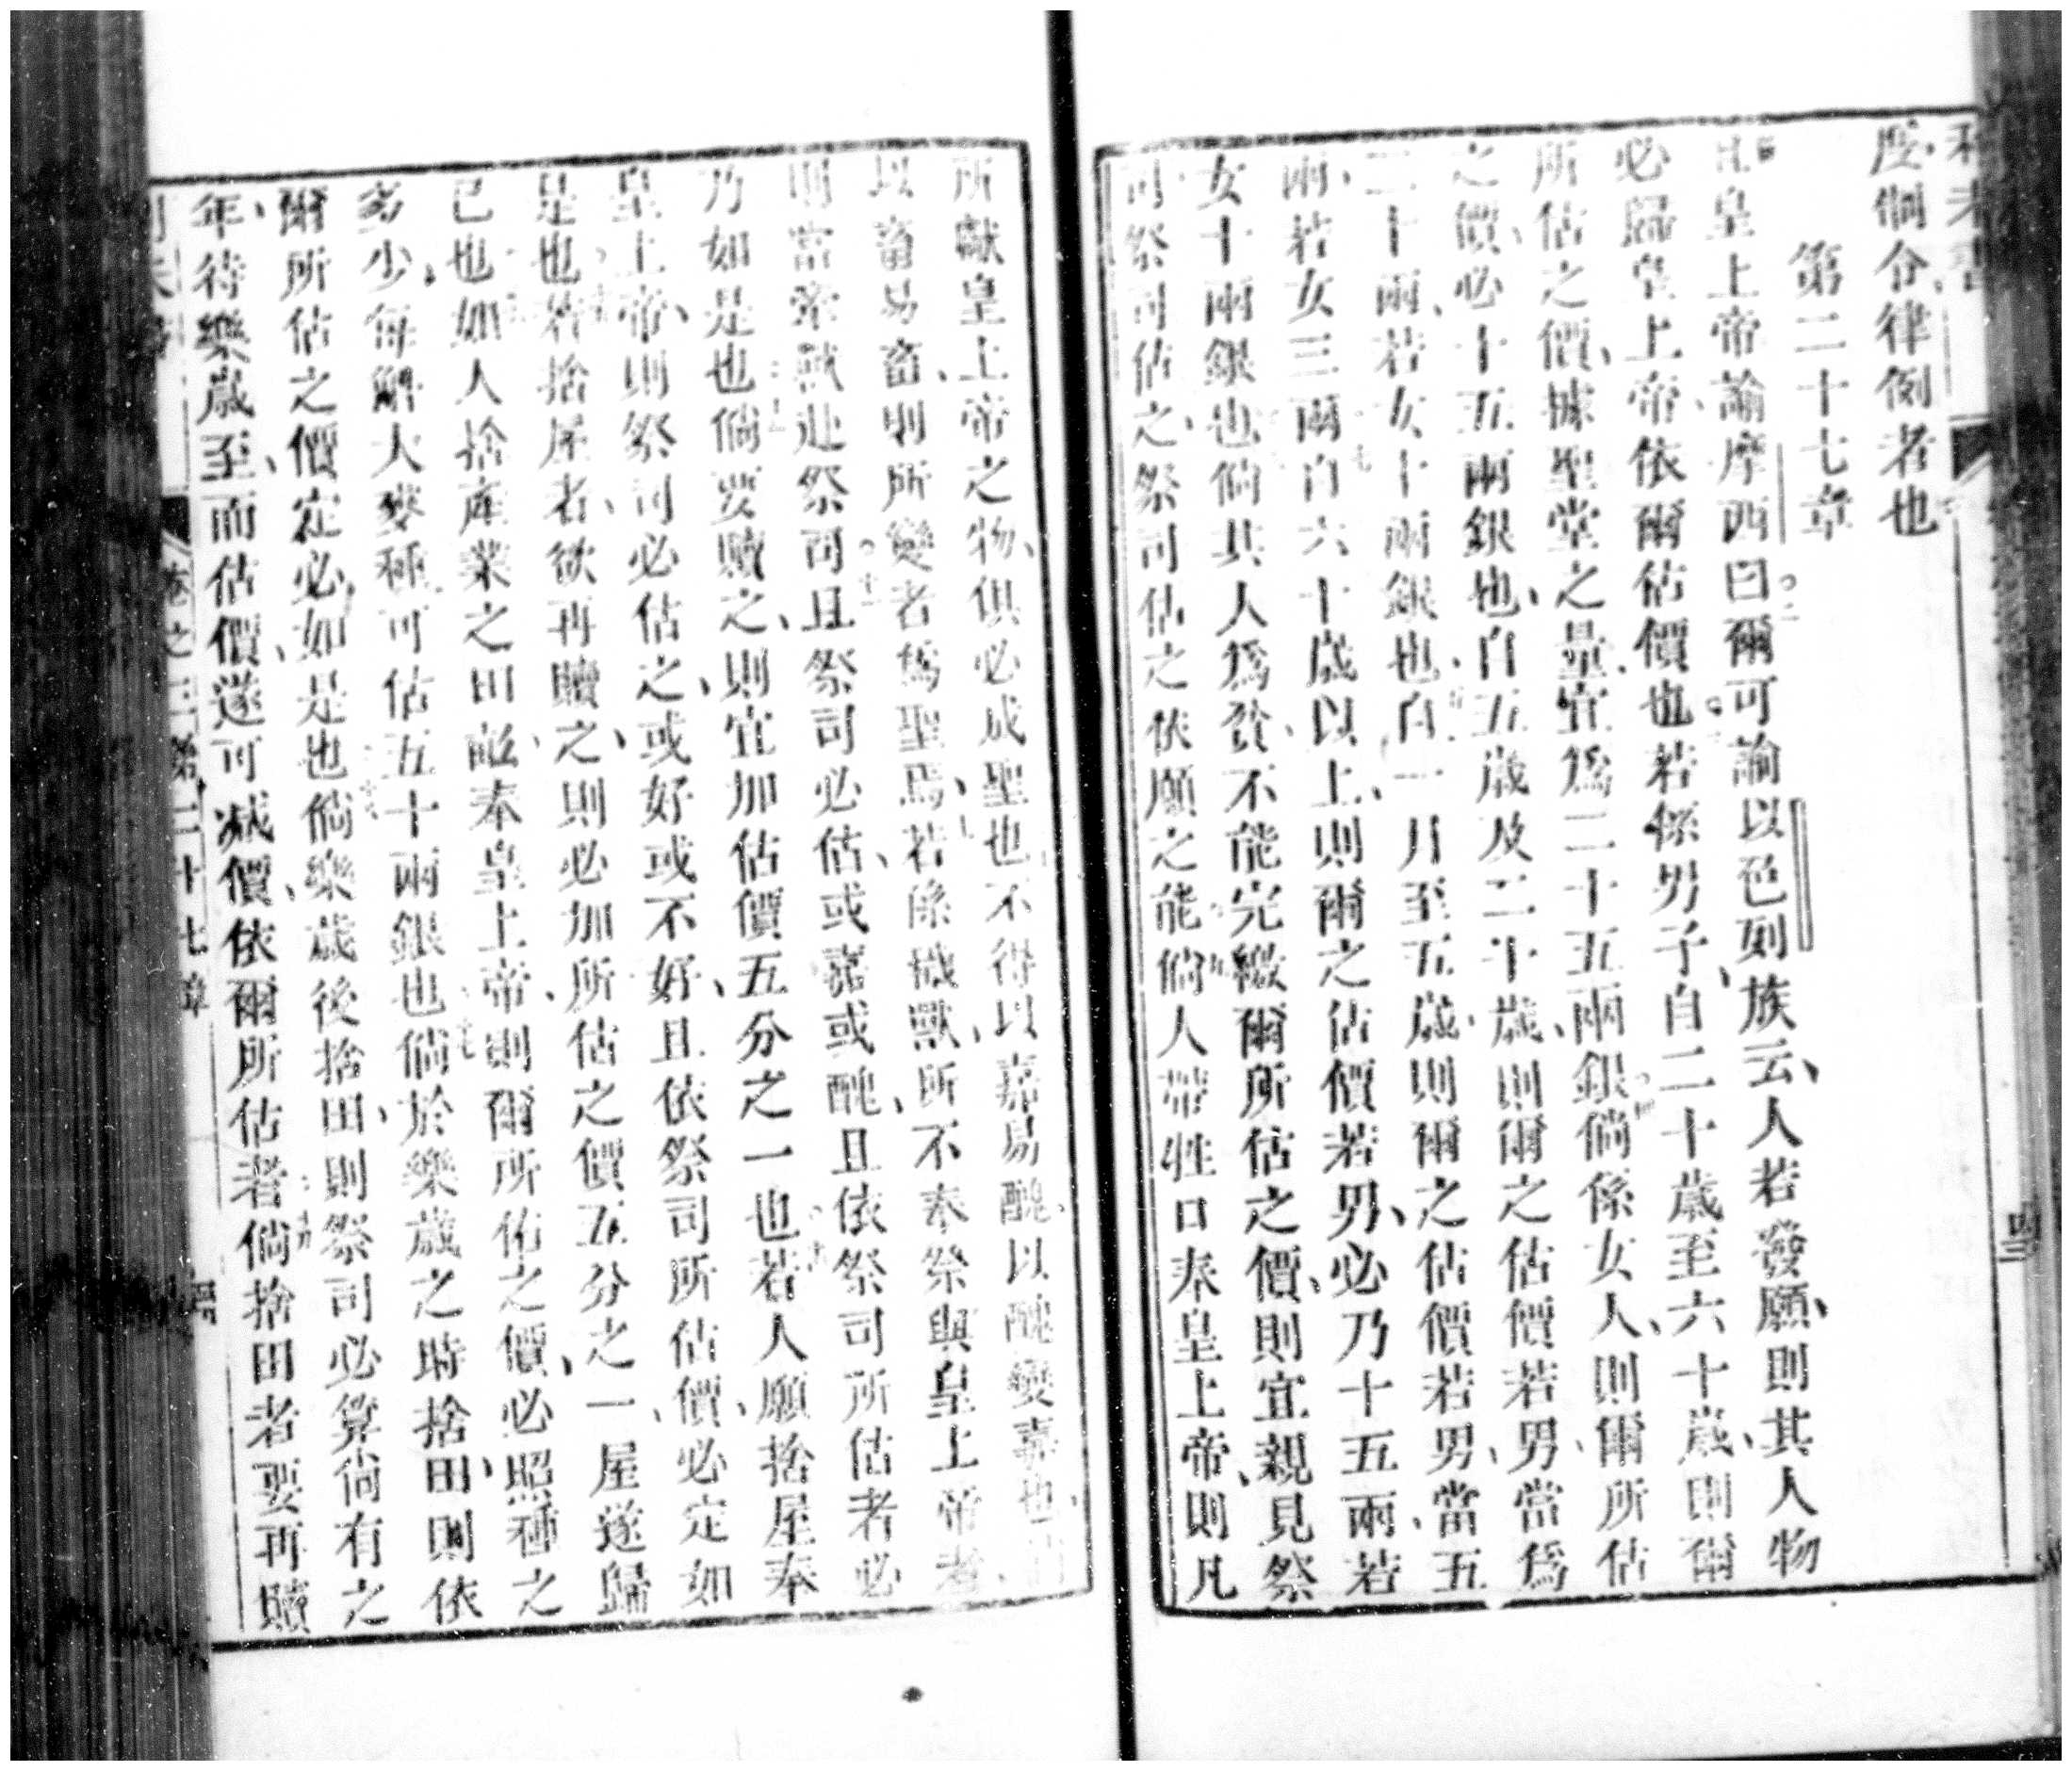 度制令律例者也
第二十七章
且皇上帝諭摩西曰爾可諭以色列族云、人若發願、則其人物
必歸皇上帝、依爾估價也若係男子、自二十歲至六十歲、則爾
所估之價、據聖堂之量、宜爲二十五兩銀倘係女人、則爾所估
之價、必十五兩銀也、自五歲及二十歲、則爾之估價若男、當爲
二十兩、若女十兩銀也、自一月至五歲、則爾之估價若男、當五
兩、若女三兩自六十歲以上、則爾之估價若男、必乃十五兩、若
女十兩銀也倘其人爲貧、不能完繳爾所估之價、則宜親見祭
司、祭司估之、祭司估之依願之能倘人帶牲口奉皇上帝、則凡
所獻皇上帝之物、俱必成聖也不得以嘉易醜、以醜變嘉也、
以畜易畜、則所變者爲聖焉、若係穢獸、所不奉祭與皇上帝者、
則當牽獸赴祭司且祭司必估、或嘉或醜、且依祭司所估者必
乃如是也倘要贖之、則宜加估價五分之一也若人願捨屋奉
皇上帝、則祭司必估之、或好或不好、且依祭司所估價、必定如
是也若捨屋者、欲再贖之、則必加所估之價五分之一、屋遂歸
已也如人捨產業之田畝、奉皇上帝、則爾所估之價、必照種之
多少、每斛大麥種可估五十兩銀也倘於樂歲之時捨田、則依
爾所估之價定必如是也倘樂歲後捨田、則祭司必算尙有之
年、待樂歲至、而估價、遂可減價、依爾所估者倘捨田者要再贖
卷之三第二十七章